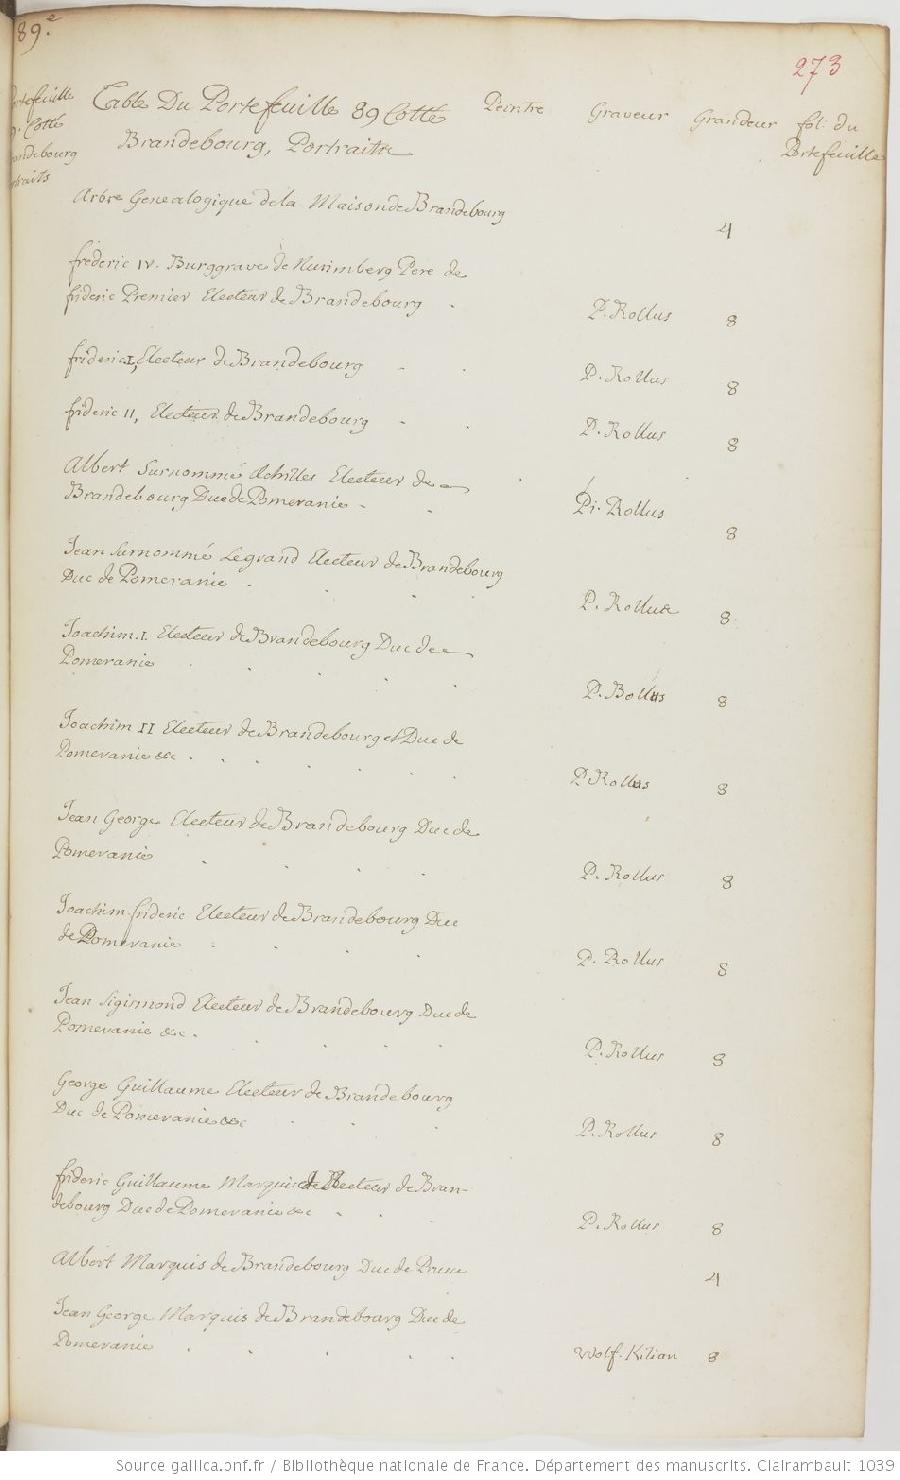 89.e
273
Table Du Portefeuille 89 Cotté Peintre Graveur Grandeur fol. du
Brandebourg, Portraits Portefeuille
Cotté
Arbre Genealogique de la Maison de Brandebourg 4
frederic IV. Burggrave de Nurimberg Pere de
frideric Premier Electeur de Brandebourg P. Rollus 8
frideric I, Electeur de Brandebourg P. Rollus 8
frideric II, Electeur de Brandebourg P. Rollus 8
Albert Surnommé Achilles Electeur de
Brandebourg Duc de Pomeranie Pi. Rollus 8
Jean Surnommé Le grand Electeur de Brandebourg
Duc de Pomeranie P. Rollus 8
Joachim. I. Electeur de Brandebourg Duc de
Pomeranie P. Bollus 8
Joachim II Electeur de Brandebourg et Duc de
Pomeranie &c. P Rollus 8
Jean George Electeur de Brandebourg Duc de
Pomeranie P. Rollus 8
Joachim frideric Electeur de Brandebourg Duc
de Pomeranie P. Rollus 8
Jean Sigismond Electeur de Brandebourg Duc de
Pomeranie &c. P. Rollus 8
George Guillaume Electeur de Brandebourg
Duc de Pomeranie &c P. Rollus 8
frideric Guillaume Marquis Electeur de Bran-
debourg Duc de Pomeranie &c P. Rollus 8
Albert Marquis de Brandebourg Duc de Prusse 4
Jean George Marquis de Brandebourg Duc de
Pomeranie Wolf. Kilian 8
Source gallica.bnf.fr / Bibliothèque nationale de France. Département des manuscrits. Clairambault 1039